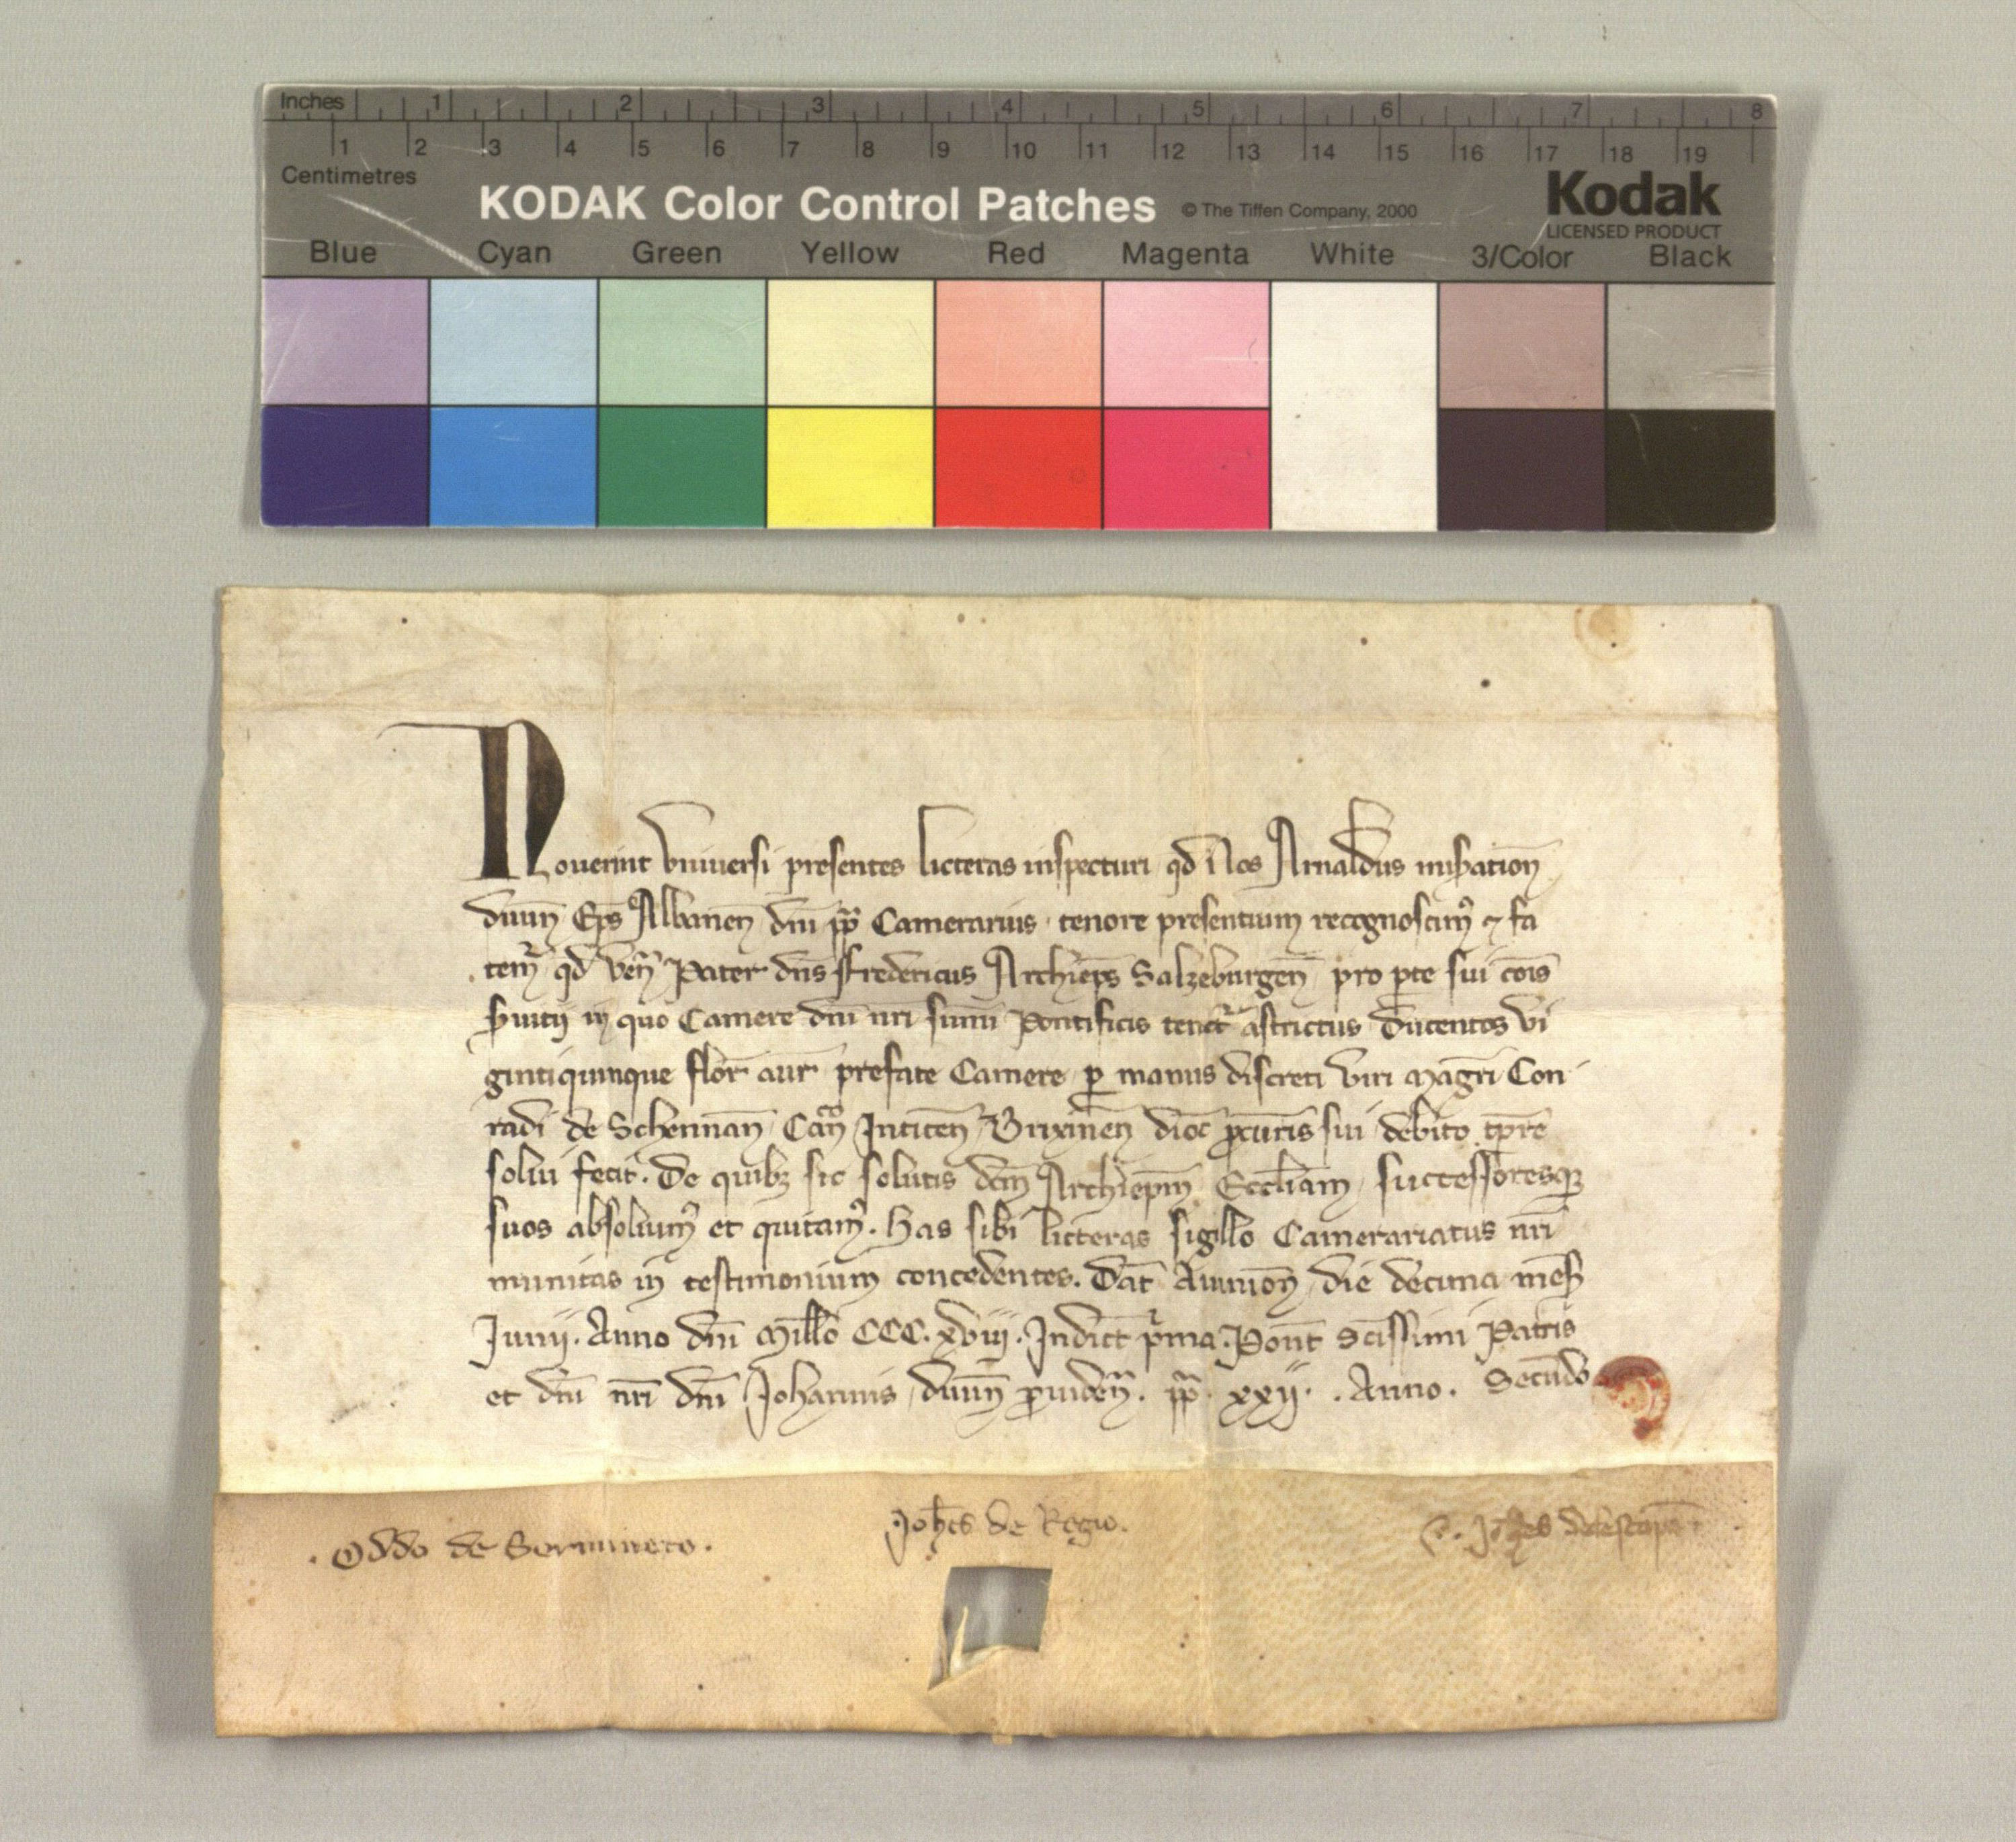 Inches 1 2 3 4 5 6 7 8
1 2 3 4 5 6 7 8 9 10 11 12 13 14 15 16 17 18 19
Centimetres
KODAK Color Control Patches © The Tiffen Company, 2000 Kodak
LICENSED PRODUCT
Blue Cyan Green Yellow Red Magenta White 3/Color Black
Nouerint vniuersi presentes licteras inspecturi qd Nos Arnaldus misation̄
diuin̄ Ep̄s Albanen̄ dn̄i pp̄ Camerarius tenore presentium recognoscim⁹ ⁊ fa
tem̄ qd ven̄ Pater dn̄s Fredericus Archiep̄s Salzeburgen̄ pro p̄te sui cōis
s̄uitij in quo Camere dn̄i nr̄i sum̄i Pontificis tenet᷑ astrictus Ducentos vi
gintiquinque flor̄ aur̄ prefate Camere p̄ manus discreti viri Magr̄i Con
radi de Schennan̄ Can̄ Inticen̄ Brixinen̄ dioc̄ p̄curīs sui debito tp̄re
solui fecit. De quibȝ sic solutis dc̄m Archiep̄m Eccl̄iam successoresqȝ
suos absoluim⁹ et quitam⁹. Has sibi licteras sigillo Camerariatus nr̄i
munitas in testimonium concedentes. Dat̄ Auinion̄ die decima mēs̄
Junij. Anno dn̄i Mill̄o CCC. xviij. Indict̄ p̄ma. Pont̄ Sc̄issimi Patris
et dn̄i nr̄i dn̄i Johannis diuin̄ p̄uiden̄. pp̄. xxij. Anno. Secundo
. Oddo de Sermineto.
Joh̄es de Regio.